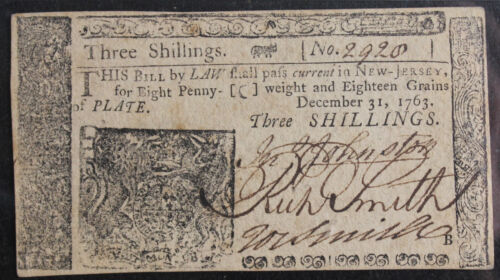 Three Shillings. [No. 2928
THIS BILL by LAW shall pass current in NEW-JERSEY,
for Eight Penny- weight and Eighteen Grains
of PLATE. December 31, 1763.
Three SHILLINGS.
Jn Johnston
Rich Smith
B